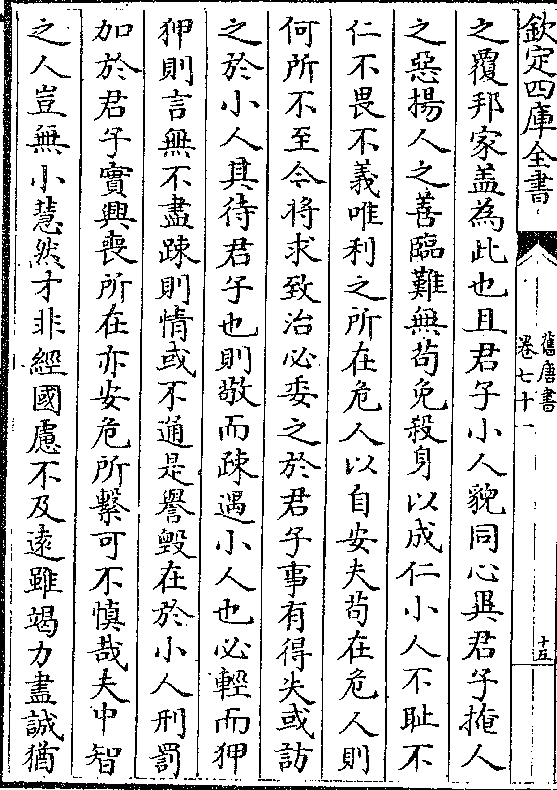 欽定四庫全書
舊唐書
卷七十一
十五
之覆邦家盖為此也且君子小人貌同心異君子掩人
之惡揚人之善臨難無苟免殺身以成仁小人不耻不
仁不畏不義唯利之所在危人以自安夫苟在危人則
何所不至今將求致治必委之於君子事有得失或訪
之於小人其待君子也則敬而疎遇小人也必輕而狎
狎則言無不盡疎則情或不通是譽毀在於小人刑罰
加於君子實興喪所在亦安危所繫可不慎哉夫中智
之人豈無小慧然才非經國慮不及遠雖竭力盡誠猶